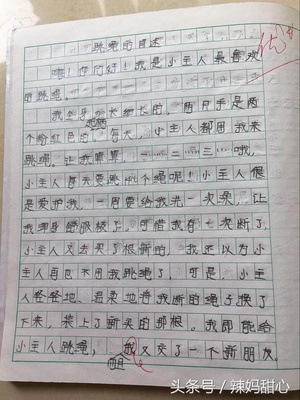 跳绳的自述
嗨！你们好！我是小主人最喜欢
的跳绳。
我全身长长细长的，两只手是两
个粉红色的 每天，小主人都用我来
跳绳。让我算算，一二三 哦，
小主人每天要跳 个绳呢！小主人很
是爱护我，一周要给我洗一次澡，让
我浑身舒服极了。可惜我有一次断了，
小主人又去买了根新的，我还以为小
主人再也不用我跳绳了，可是，小主
人轻轻地、温柔地将我断的绳子换了
下来，装上了新买的那根。我即能给
小主人跳绳， 我又交了一个新朋友
而且
优
头条号／辣妈甜心